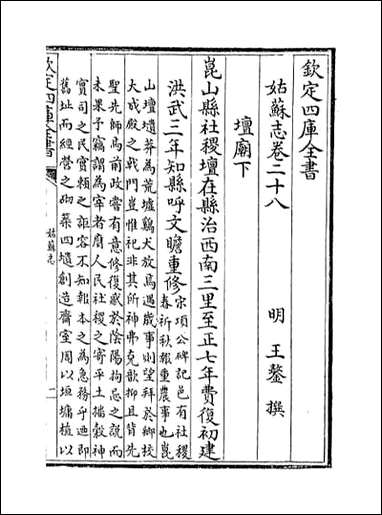 欽定四庫全書
姑蘇志卷二十八
明 王鏊 撰
壇廟下
崑山縣社稷壇在縣治西南三里至正七年費復初建
宋項公碑記邑有社稷
春祈秋報重農事也崑
洪武三年知縣呼文瞻重修
山壇壝莽為荒墟鷄犬放焉遇歲事則望拜於鄉校
大成殿之戟門豈惟祀非其所神弗克歆抑且背先
聖先師為前政嘗有意修復感於陰陽拘忌之說而
未果予竊謂為宰者府人民社稷之寄平土播穀神
實司之民實賴之詎容不知報本之為急務乎迺即
舊址而經營之砌築四壝創造齋室周以垣墉植以
欽定四庫全書
姑蘇志